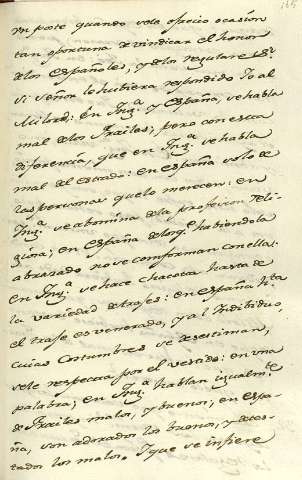 165
un poste quando vela oficio ocasión
tan oportuna de vindicar el honor
de los Españoles, y de los regulares Sr.
Si Señor le hubiera respondido Yo al
Milord: En Ingª. y España, se habla
mal de los Frailes; pero con esta
diferencia, que en Ingª. se habla
mal del estado: en España solo de
las personas que lo merecen: en
Ingª. se abomina de la profesion Reli-
giosa; en España de los qe. habiendola
abrazado no se comforman con ella:
en Ingª. se hace chacota hasta de
la variedad de trages: en España hta.
el trage es venerado, y al Indibiduo,
cuias Costumbres se desestiman,
se le respecta por el vestido: en una
palabra; en Ingª. hablan igualmte.
de Frailes malos, y buenos; en Espa-
ña, son adorados los buenos, y detes-
tados los malos. Y que se infiere